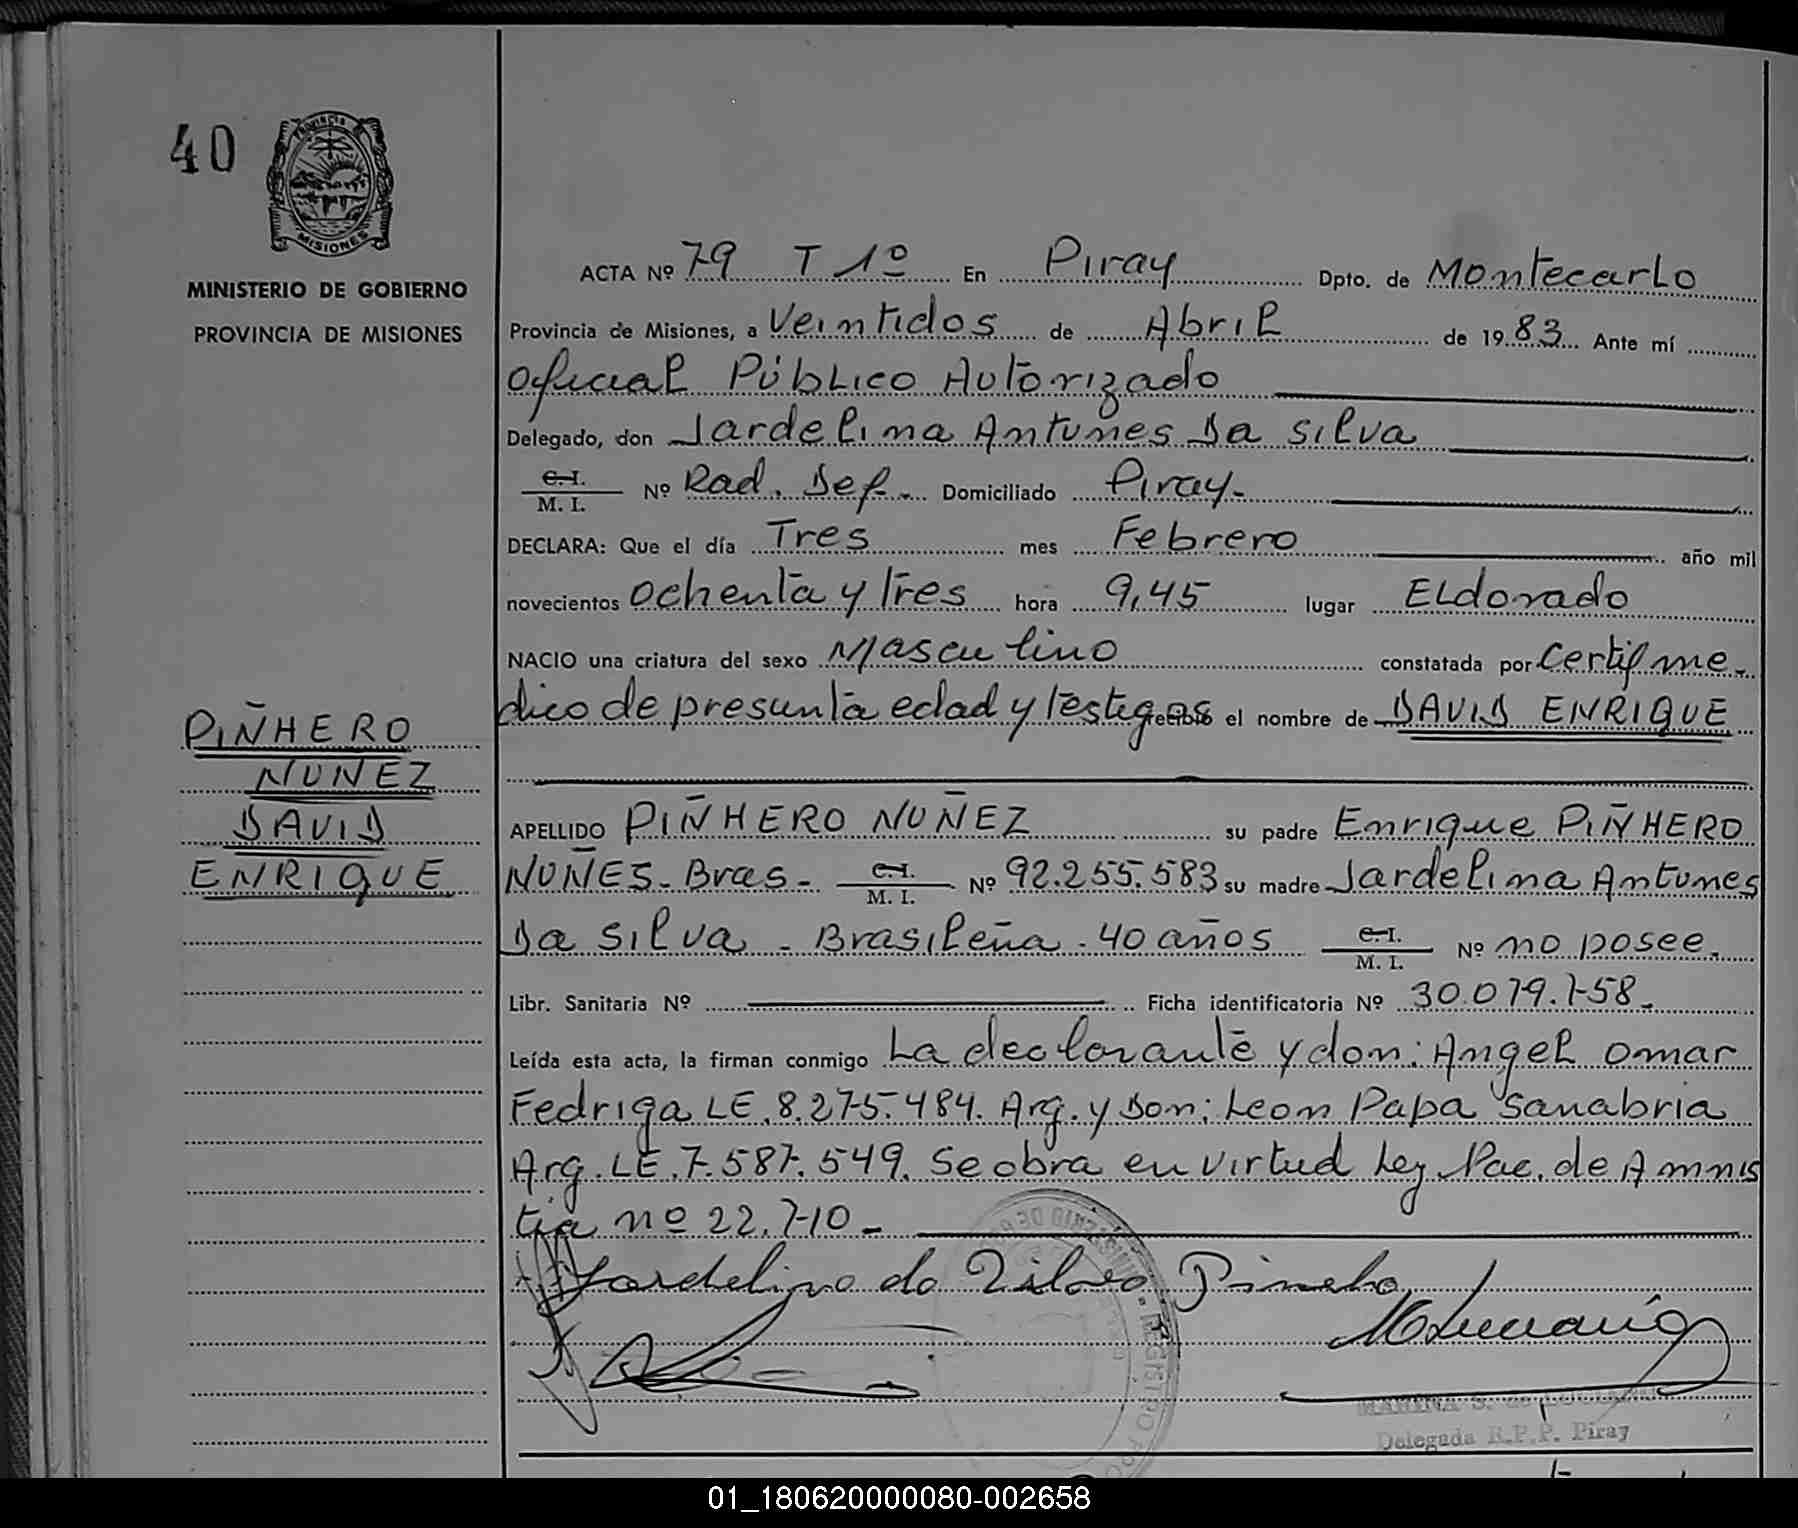 40
PROVINCIA DE
MISIONES
MINISTERIO DE GOBIERNO
PROVINCIA DE MISIONES
PIÑHERO
NUNEZ
DAVID
ENRIQUE
ACTA Nº 79 T 1º En Piray Dpto. de Montecarlo
Provincia de Misiones, a Veintidos de Abril de 1983 Ante mí
oficial Público Autorizado
Delegado, don Jardelina Antunes Da Silva
C. I.
M. I. Nº Rad. Def. Domiciliado Piray-
DECLARA: Que el día Tres mes Febrero año mil
novecientos ochenta y Tres hora 9,45 lugar ELdorado
NACIO una criatura del sexo Masculino constatada por Certif me-
dico de presunta edad y testegos recibió el nombre de DAVID ENRIQUE
APELLIDO PIÑHERO NUÑEZ su padre Enrique PIÑHERO
NUÑES- Bras- C. I.
M. I. Nº 92.255.583 su madre Jardelina Antunes
Da Silva - Brasileña - 40 años C. I.
M. I. Nº no posee.
Libr. Sanitaria Nº Ficha identificatoria Nº 30.079.758-
Leída esta acta, la firman conmigo La declarante y don: Angel omar
Fedriga LE. 8.275.484. Arg. y Don: Leon Papa Sanabria
Arg. LE. 7.587.549. Se obra en virtud Ley Nac. de Amnis
tia nº 22.710-
Delegada R.P.P. Piray
01_180620000080-002658